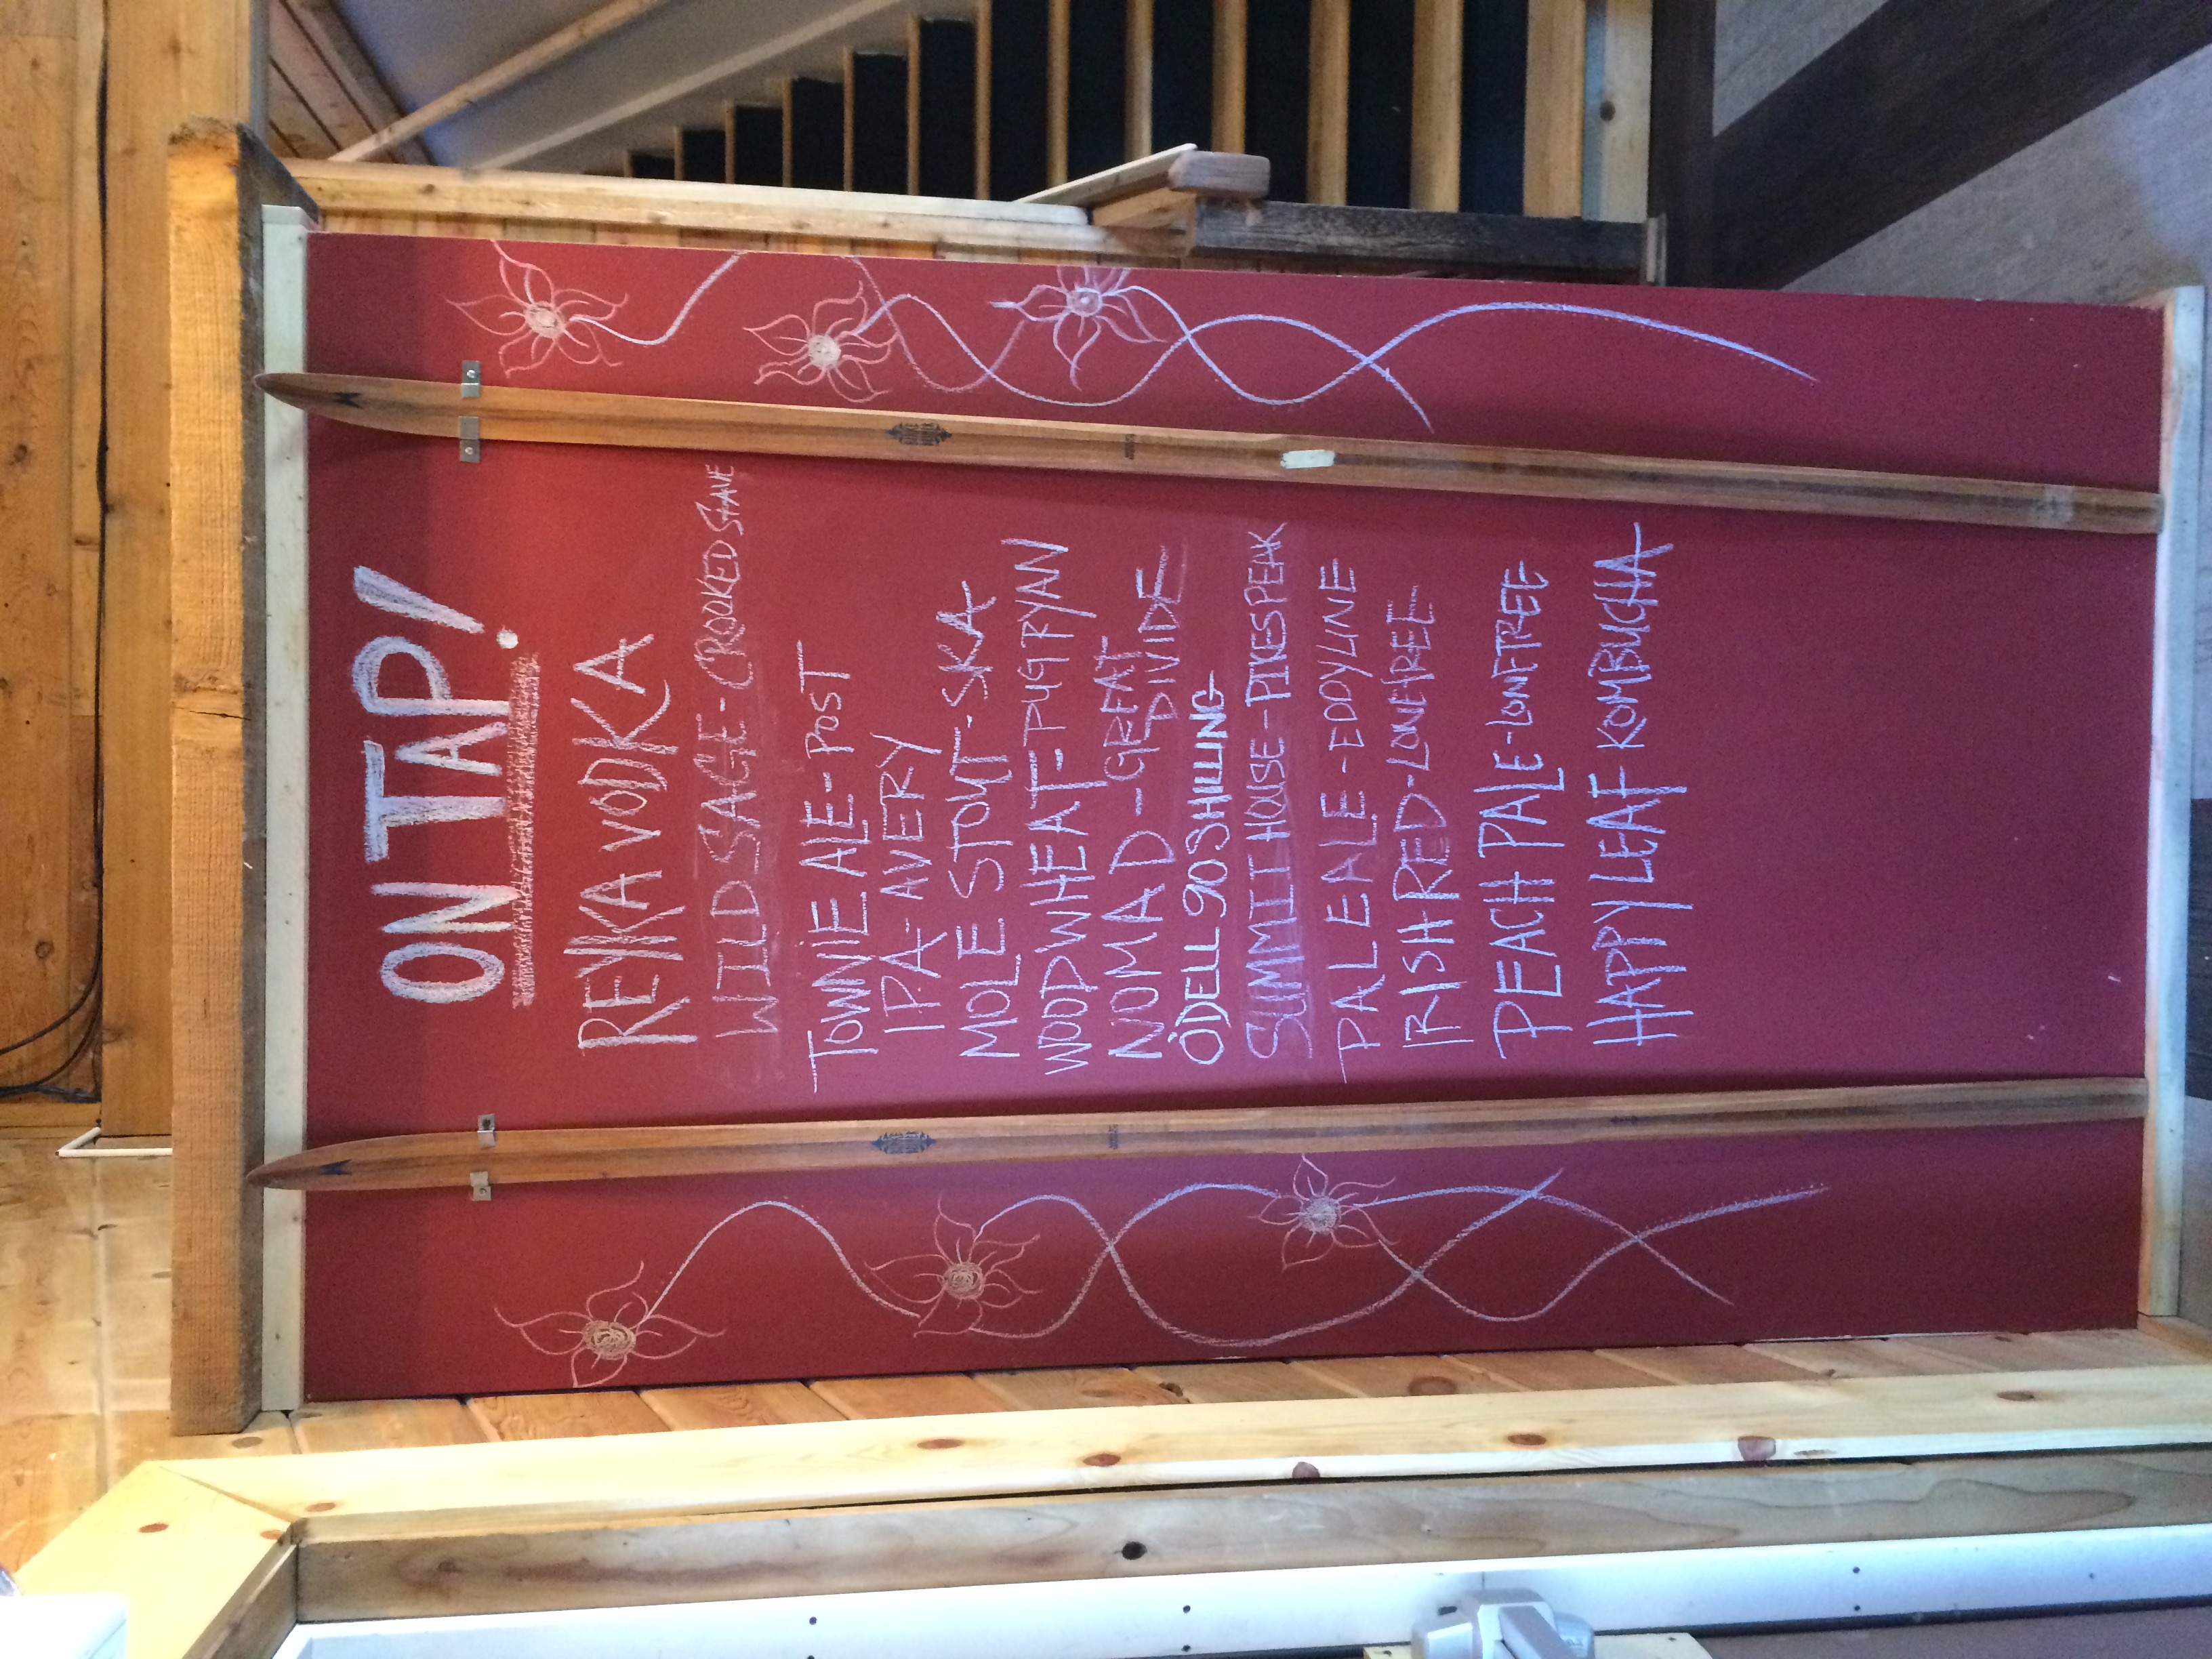 ON TAP!
REYKA VODKA
WILD SAGE - CROOKED STAVE
TOWNIE ALE - POST
IPA - AVERY
MOLE STOUT - SKA
WOOD WHEAT - PUG RYAN
NOMAD - GREAT
DIVIDE
ODELL 90 SHILLING
SUMMIT HOUSE - PIKES PEAK
PALE ALE - EDDYLINE
IRISH RED - LONETREE
PEACH PALE - LONETREE
HAPPY LEAF KOMBUCHA